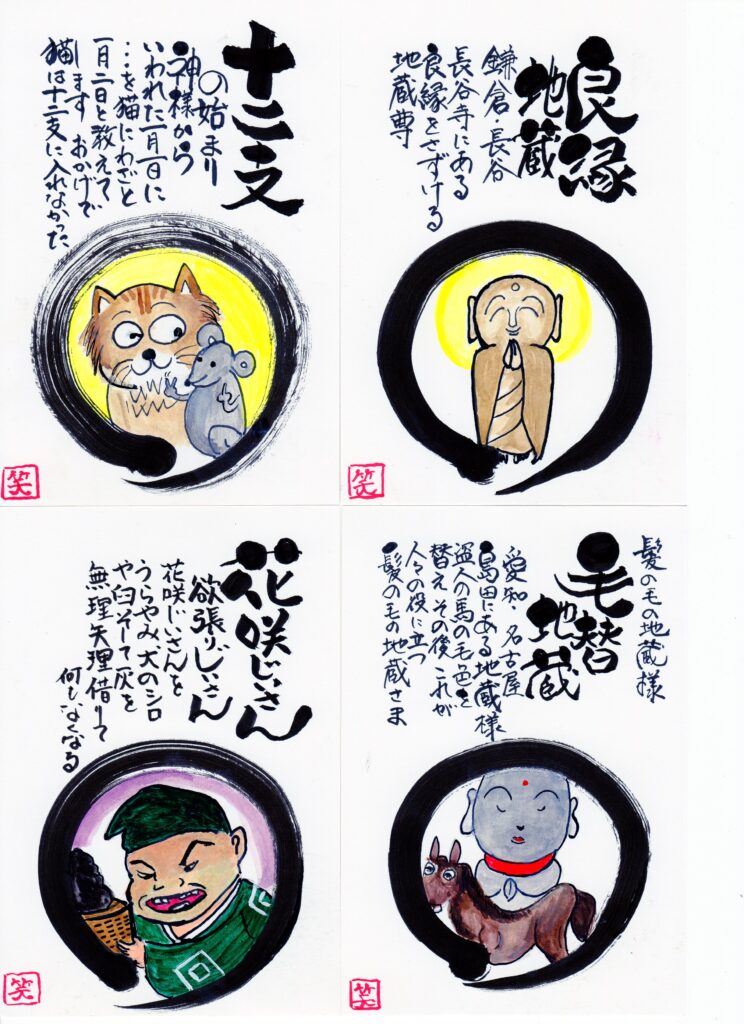 十二支
の始まり
神様から
いわれた一月一日に
…を猫にわざと
一月二日と教えて
します おかげで
猫は十二支に入れなかった
笑
良縁
地蔵
鎌倉 長谷
長谷寺にある
良縁をさずける
地蔵尊
笑
花咲じいさん
欲張りじいさん
花咲じいさんを
うらやみ、犬のシロ
や臼そして灰を
無理矢理借りて
何もなくなる
笑
髪の毛の地蔵様
毛替
地蔵
愛知、名古屋
島田にある地蔵様
盗人の馬の毛色を
替え その後 これが
人々の役に立つ
髪の毛の地蔵さま
笑